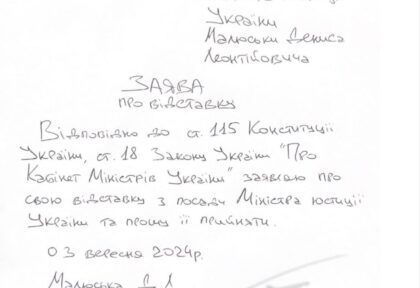 України
Малюськи Дениса
Леонтійовича
ЗАЯВА
про відставку
Відповідно до ст. 115 Конституції
України, ст. 18 Закону України "Про
Кабінет Міністрів України" заявляю про
свою відставку з посади Міністра юстиції
України та прошу її прийняти.
03 вересня 2024р.
Малюська Д.Л.